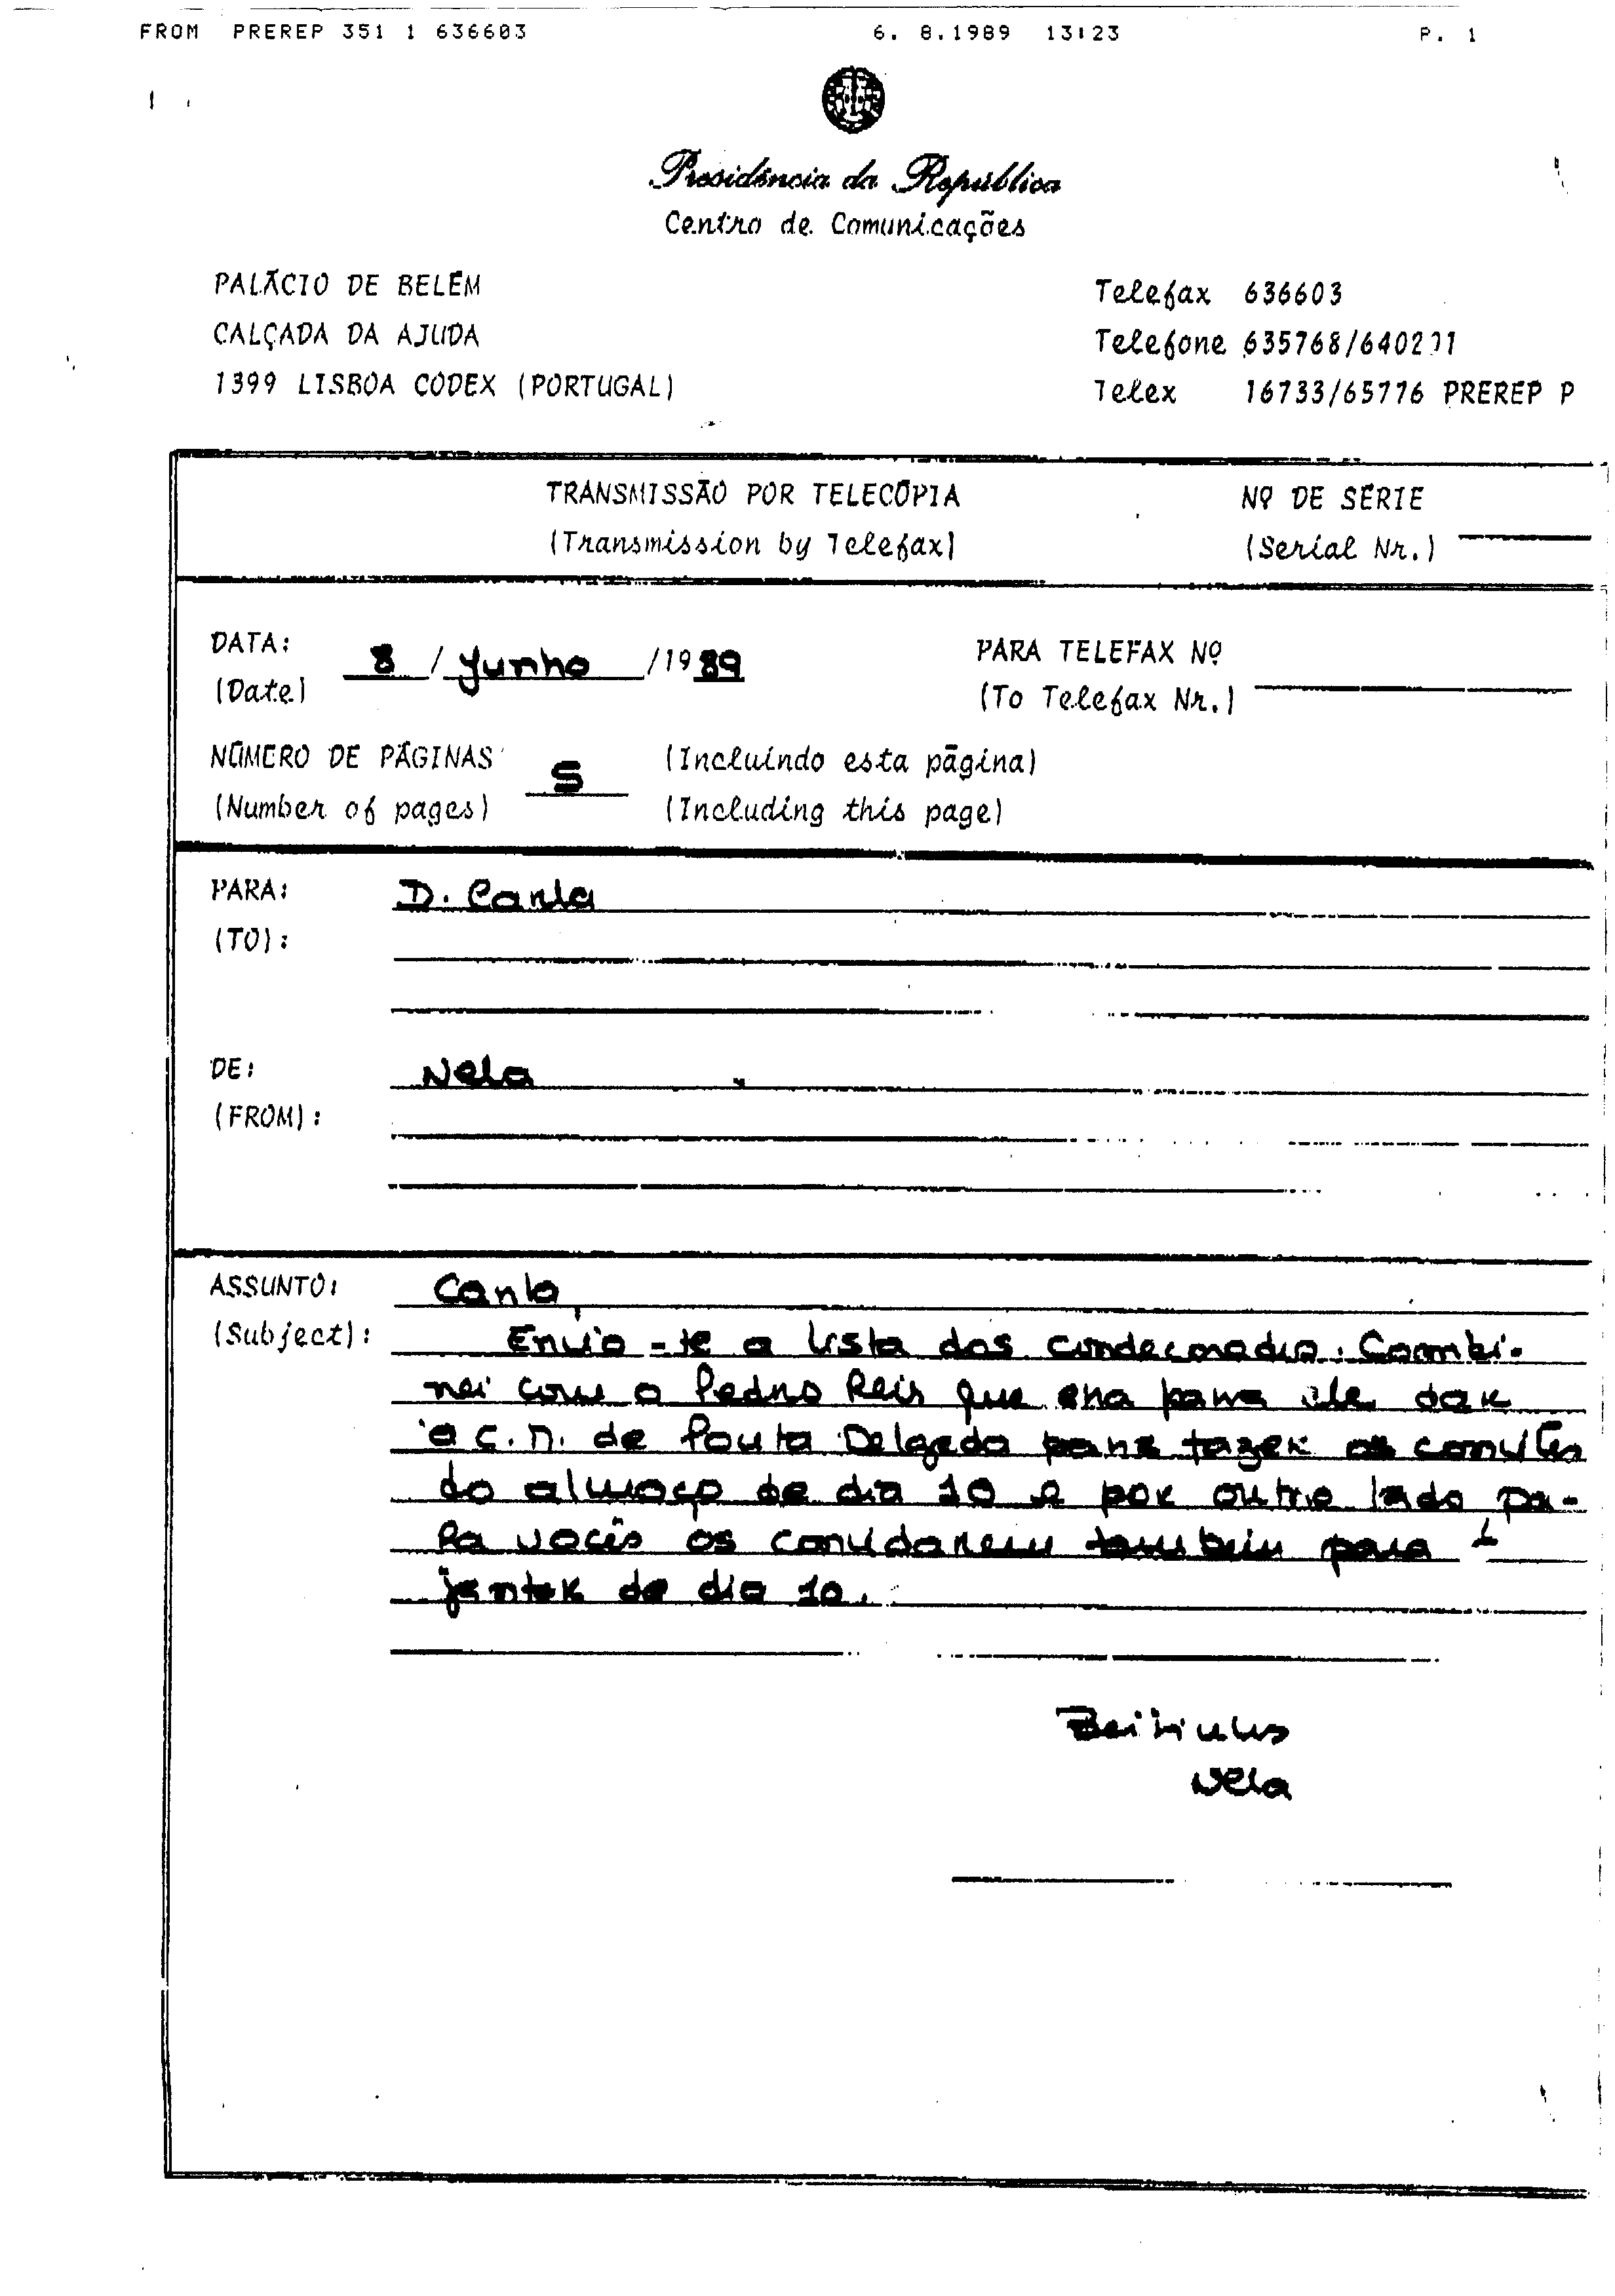 FROM PREREP 351 1 636603 6. 8.1989 13:23 P. 1
Presidência da República
Centro de Comunicações
PALÁCIO DE BELÉM
CALÇADA DA AJUDA
1399 LISBOA CODEX (PORTUGAL)
Telefax 636603
Telefone 635768/640201
Telex 16733/65776 PREREP P
TRANSMISSÃO POR TELECÓPIA
(Transmission by Telefax)
Nº DE SÉRIE
(Serial Nr.)
DATA: 8 / Junho /1989
(Date)
PARA TELEFAX Nº
(To Telefax Nr.)
NÚMERO DE PÁGINAS 5 (Incluindo esta página)
(Number of pages) (Including this page)
PARA: D. Carla
(TO):
DE: Nela
(FROM):
ASSUNTO: Carla,
(Subject): Envio-te a lista dos condecorados. Coombi-
nei com o Pedro Reis que era para ele dar
à C.M. de Ponta Delgada para fazer os convites
do almoço de dia 10 e por outro lado pa-
ra vocês os convidarem também para
jantar de dia 10.
Beijinhos
Nela